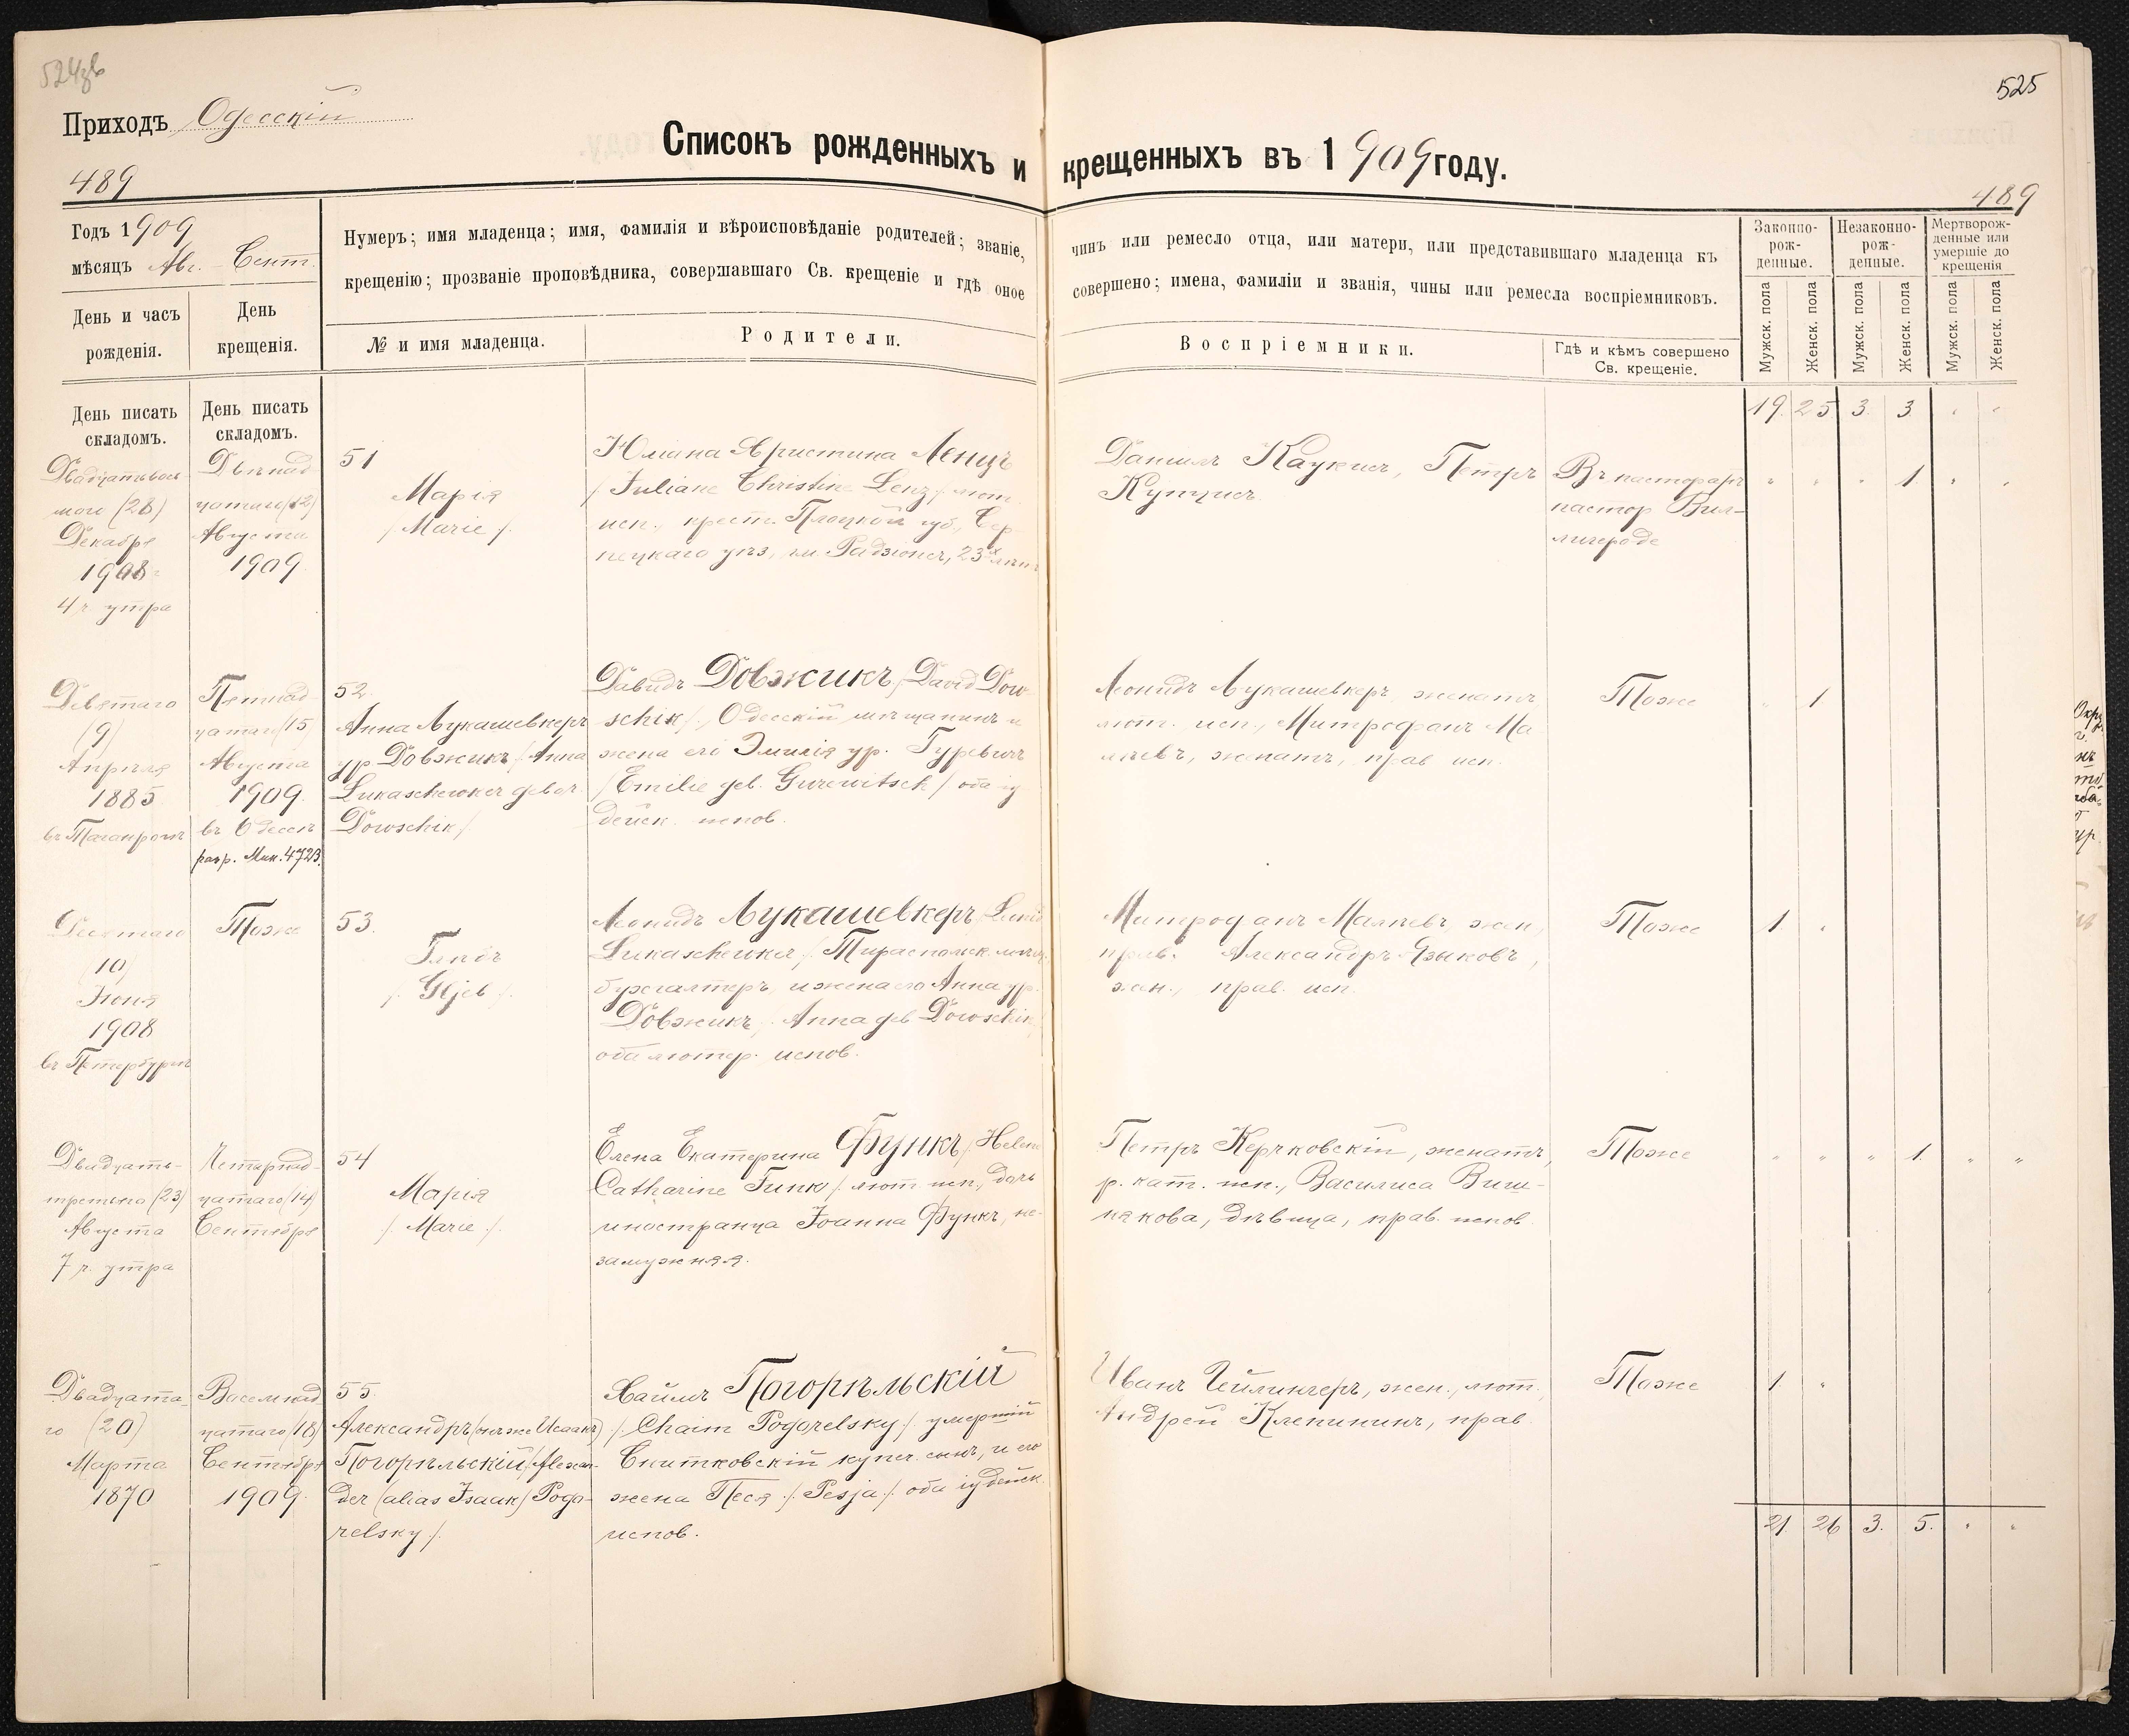 524 об
525
Приходъ Одесскій
Списокъ рожденныхъ и крещенныхъ въ 1909 году.
489
489
Годъ 1909
мѣсяцъ Авг. - Сент.
Нумеръ; имя младенца; имя, фамилія и вѣроисповѣданіе родителей; званіе, чинъ или ремесло отца, или матери, или представившаго младенца къ
крещенію; прозваніе проповѣдника, совершавшаго Св. крещеніе и гдѣ оное совершено; имена, фамиліи и званія, чины или ремесла воспріемниковъ.
День и часъ
рожденія.
День
крещенія.
№ и имя младенца.
Родители.
Воспріемники.
Гдѣ и кѣмъ совершено
Св. крещеніе.
Законно-
рож-
денные.
Незаконно-
рож-
денные.
Мертворож-
денные или
умершіе до
крещенія
Мужск. пола
Женск. пола
Мужск. пола
Женск. пола
Мужск. пола
Женск. пола
День писать
складомъ.
День писать
складомъ.
19. 25 3. 3 " "
Двадцатьвось-
маго (28)
Декабря
1908
4 ч. утра
Двѣнад-
цатаго (12)
Августа
1909
51
Марія
/ Marie /.
Юліана Христина Ленцъ
/ Juliane Christine Lenz / лют.
исп., крест. Плоцкой губ., Сер-
пецкаго уѣз., гм. Радзіонсъ, 23х лѣтъ
Даніилъ Каукисъ, Петръ
Купчисъ.
Въ пасторатѣ
пастор Вил-
лигероде
" " " 1 " "
Девятаго
(9)
Апрѣля
1885
въ Таганрогѣ
Пятнад-
цатаго (15)
Августа
1909.
въ Одессѣ
разр. Мин. 4723.
52.
Анна Лукашевкеръ
ур. Довжикъ / Anna
Lukaschewker geb.
Dowschik /
Давидъ Довжикъ, / David Dow-
schik /, Одесскій мѣщанинъ и
жена его Эмилія ур. Гуревичъ
/ Emilie geb. Gurewitsch / оба іу-
дейск. испов.
Леонидъ Лукашевкеръ, женатъ,
лют. исп., Митрофанъ Ма-
лѣевъ, женатъ, прав. исп.
Тоже
" 1
Десятаго
(10)
Іюня
1908
въ Петербургѣ
Тоже
53.
Глѣбъ
/. Gljeb /.
Леонидъ Лукашевкеръ,
Lukaschewker /, Тираспольск. мѣщ.
бухгалтеръ, и жена его Анна ур.
Довжикъ, /. Anna geb. Dowschik /
оба лютер. испов.
Митрофанъ Малѣевъ, жен.,
прав. Александръ Языковъ,
жен., прав. исп.
Тоже
1 "
Двадцать-
третьяго (23)
Августа
7 ч. утра
Четырнад-
цатаго (14)
Сентября
54
Марія
/. Marie /.
Елена Екатерина Функъ, / Helene
Catharine Funk /. лют. исп., дочь
иностранца Іоанна Функъ, не-
замужняя.
Петръ Керчковскій, женатъ,
р. кат. исп., Василиса Виш-
някова, дѣвица, прав. испов.
Тоже
" " " 1. " "
Двадцата-
го (20)
Марта
1870
Восемнад-
цатаго (18)
Сентября
1909.
55.
Александръ (онъ же Исаакъ)
Погорѣльскій / Alexan-
der (alias Isaak) Pogo-
relsky /.
Хаимъ Погорѣльскій
/. Chaim Pogorelsky /. умершій
Снитковскій купеч. сынъ, и его
жена Песя /. Pesja /. оба іудейск.
испов.
Иванъ Гейлингеръ, жен., лют.,
Андрей Клепининъ, прав.
Тоже
1. "
21 26 3. 5. " "